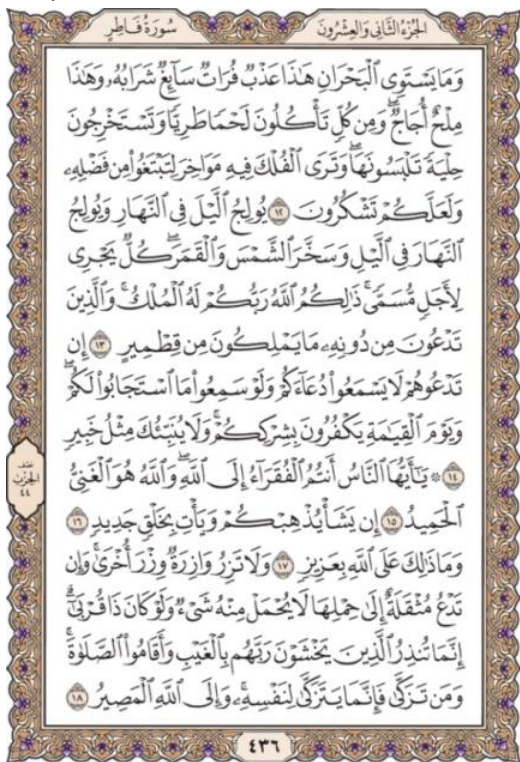 الجُزْءُ الثَّانِي وَالعِشْرُونَ سُورَةُ فَاطِرٍ
وَمَا يَسْتَوِي الْبَحْرَانِ هَٰذَا عَذْبٌ فُرَاتٌ سَآئِغٌ شَرَابُهُۥ وَهَٰذَا
مِلْحٌ أُجَاجٌ ۖ وَمِن كُلٍّ تَأْكُلُونَ لَحْمًا طَرِيًّا وَتَسْتَخْرِجُونَ
حِلْيَةً تَلْبَسُونَهَا ۖ وَتَرَى الْفُلْكَ فِيهِ مَوَاخِرَ لِتَبْتَغُوا۟ مِن فَضْلِهِۦ
وَلَعَلَّكُمْ تَشْكُرُونَ ١٢ يُولِجُ الَّيْلَ فِي النَّهَارِ وَيُولِجُ
النَّهَارَ فِي الَّيْلِ وَسَخَّرَ الشَّمْسَ وَالْقَمَرَ ۖ كُلٌّ يَجْرِي
لِأَجَلٍ مُّسَمًّى ۚ ذَٰلِكُمُ اللَّهُ رَبُّكُمْ لَهُ الْمُلْكُ ۚ وَالَّذِينَ
تَدْعُونَ مِن دُونِهِۦ مَا يَمْلِكُونَ مِن قِطْمِيرٍ ١٣ إِن
تَدْعُوهُمْ لَا يَسْمَعُوا۟ دُعَآءَكُمْ وَلَوْ سَمِعُوا۟ مَا اسْتَجَابُوا۟ لَكُمْ ۖ
وَيَوْمَ الْقِيَٰمَةِ يَكْفُرُونَ بِشِرْكِكُمْ ۚ وَلَا يُنَبِّئُكَ مِثْلُ خَبِيرٍ
١٤ ۞ يَٰٓأَيُّهَا النَّاسُ أَنتُمُ الْفُقَرَآءُ إِلَى اللَّهِ ۖ وَاللَّهُ هُوَ الْغَنِيُّ
الْحَمِيدُ ١٥ إِن يَشَأْ يُذْهِبْكُمْ وَيَأْتِ بِخَلْقٍ جَدِيدٍ ١٦
وَمَا ذَٰلِكَ عَلَى اللَّهِ بِعَزِيزٍ ١٧ وَلَا تَزِرُ وَازِرَةٌ وِزْرَ أُخْرَىٰ ۚ وَإِن
تَدْعُ مُثْقَلَةٌ إِلَىٰ حِمْلِهَا لَا يُحْمَلْ مِنْهُ شَيْءٌ وَلَوْ كَانَ ذَا قُرْبَىٰٓ ۗ
إِنَّمَا تُنذِرُ الَّذِينَ يَخْشَوْنَ رَبَّهُم بِالْغَيْبِ وَأَقَامُوا۟ الصَّلَوٰةَ ۚ
وَمَن تَزَكَّىٰ فَإِنَّمَا يَتَزَكَّىٰ لِنَفْسِهِۦ ۚ وَإِلَى اللَّهِ الْمَصِيرُ ١٨
نصف
الحزب
٤٤
٤٣٦